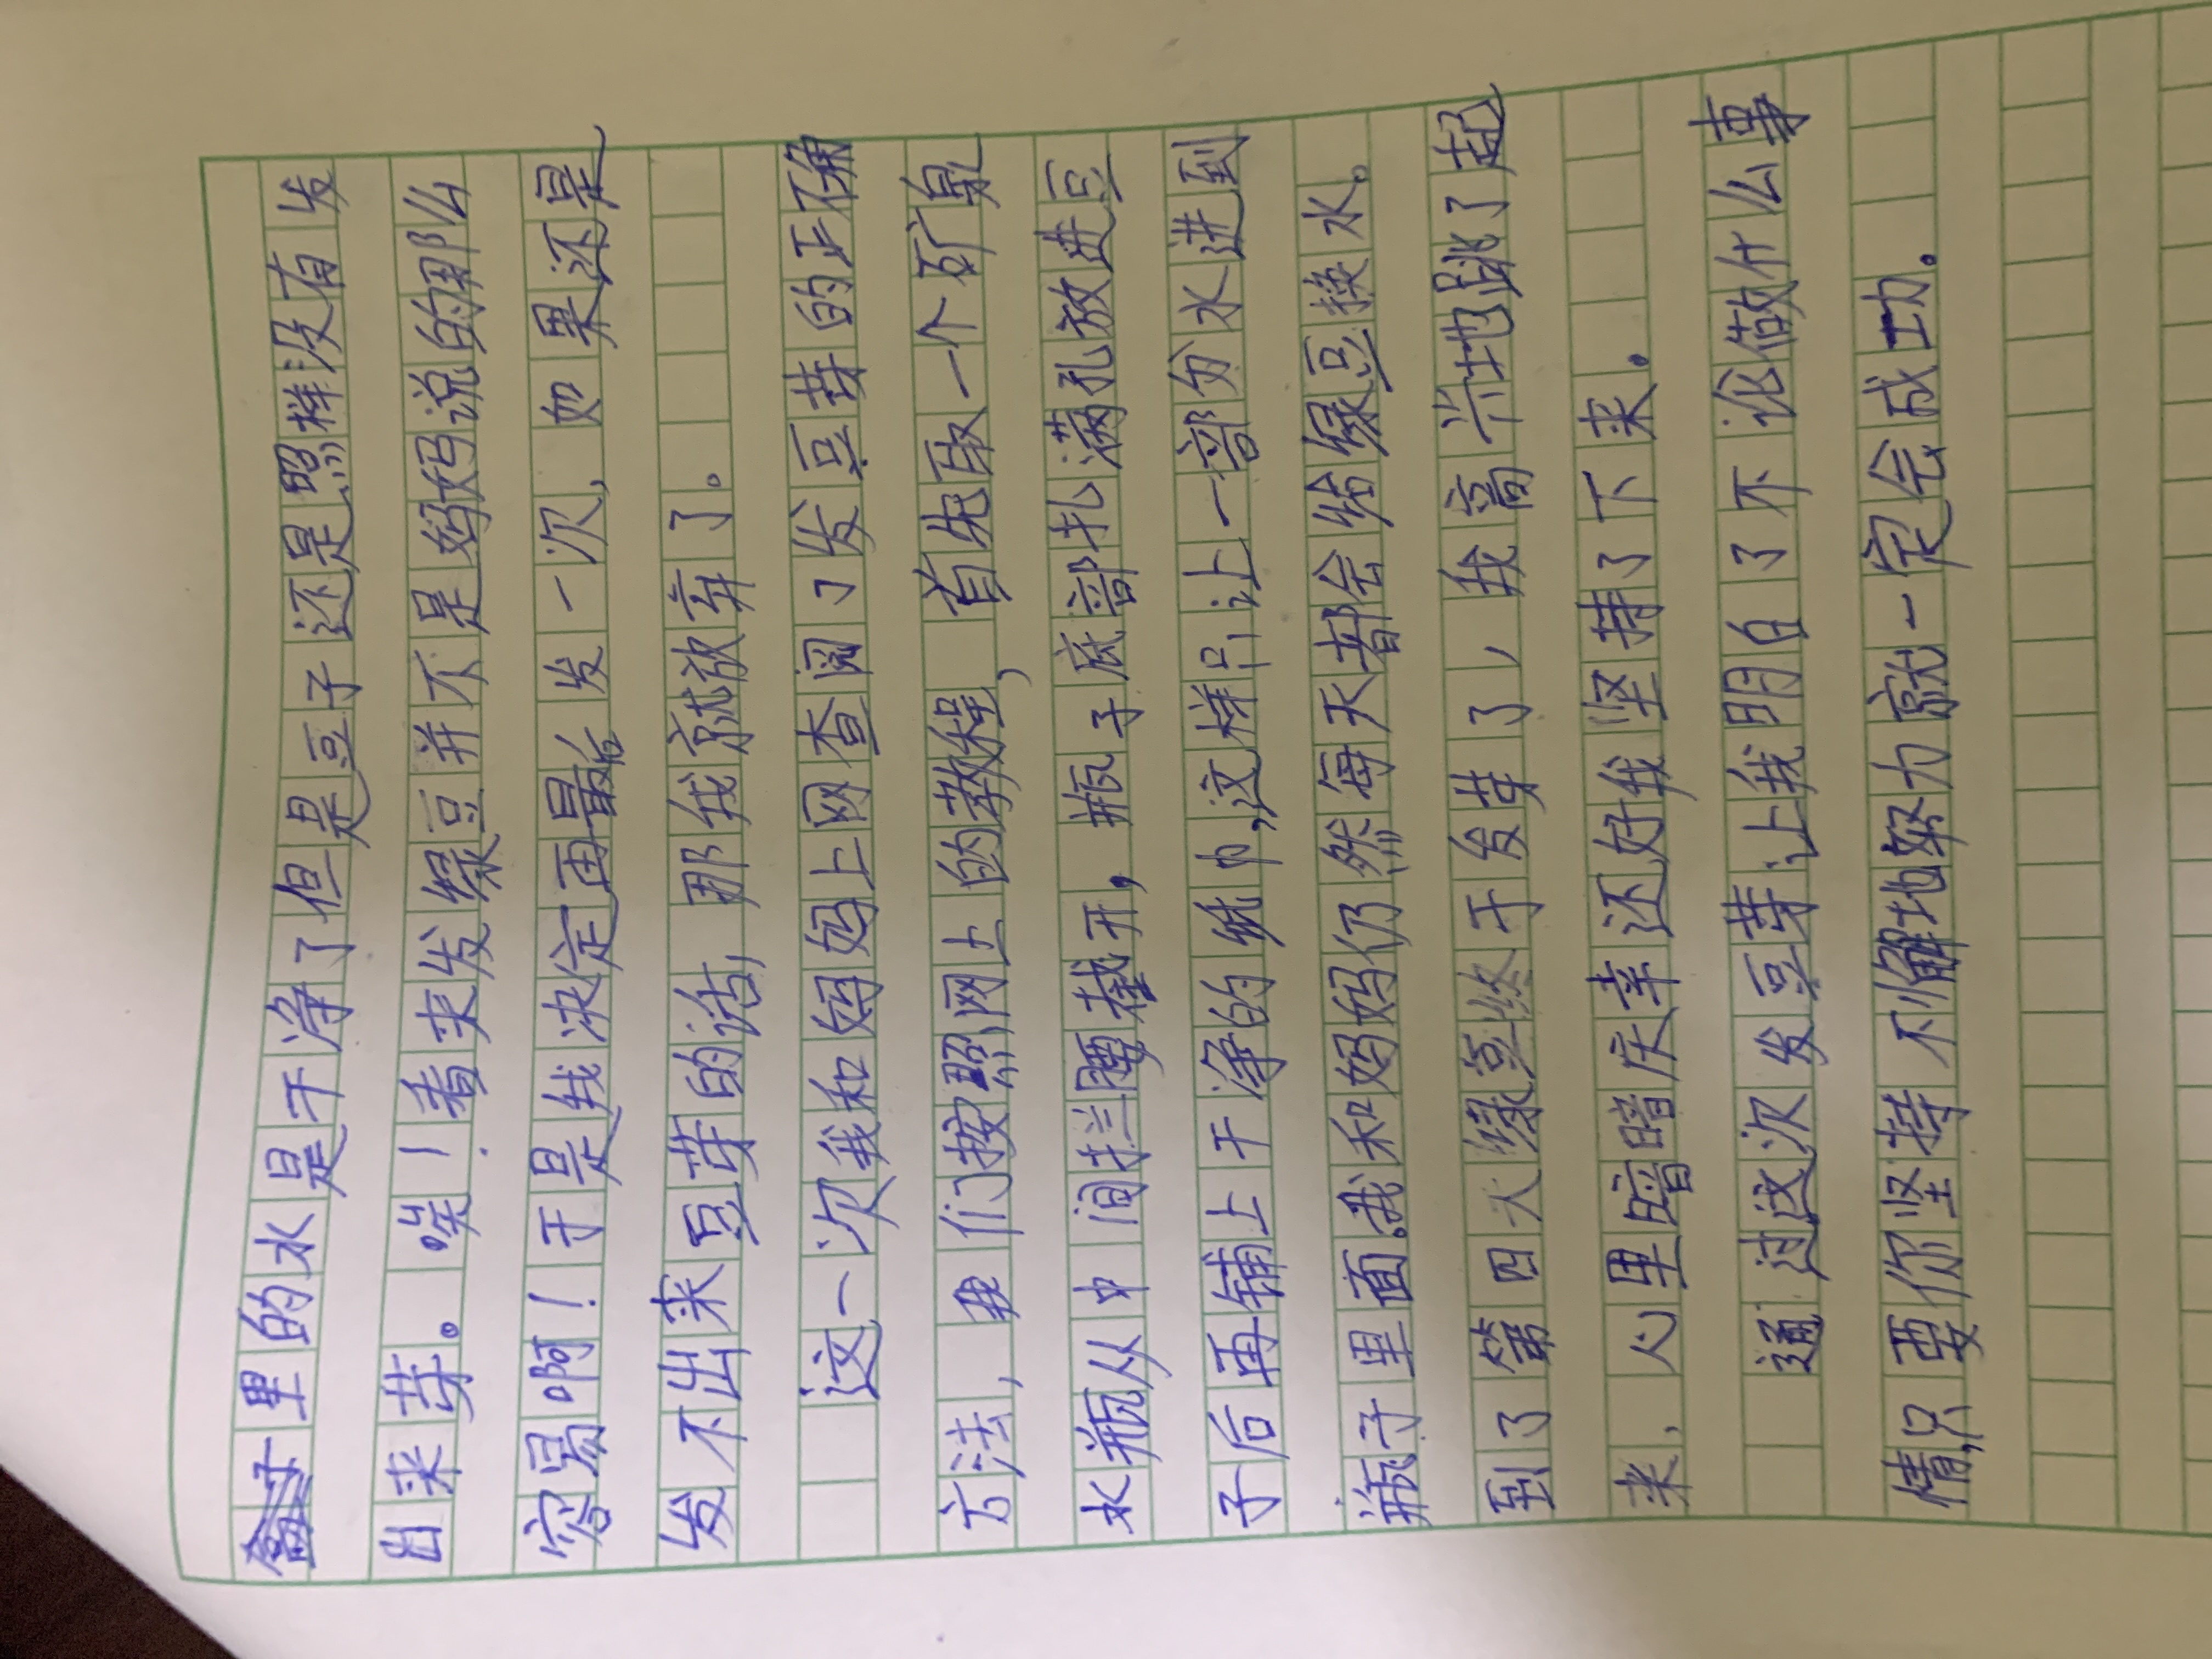 盒子里的水是干净了但是豆子还是照样没有发
出来芽。唉！看来发绿豆并不是妈妈说的那么
容易啊！于是我决定再最后发一次，如果还是
发不出来豆芽的话，那我就放弃了。
这一次我和妈妈上网查阅了发豆芽的正确
方法，我们按照网上的教程，首先取一个矿泉
水瓶从中间拦腰截开，瓶子底部扎满孔放进豆
子后再铺上干净的纸巾，这样只让一部分水进到
瓶子里面。我和妈妈仍然每天都会给绿豆换水。
到了第四天绿豆终于发芽了，我高兴地跳了起
来，心里暗暗庆幸还好我坚持了下来。
通过这次发豆芽让我明白了不论做什么事
情，只要你坚持不懈地努力就一定会成功。